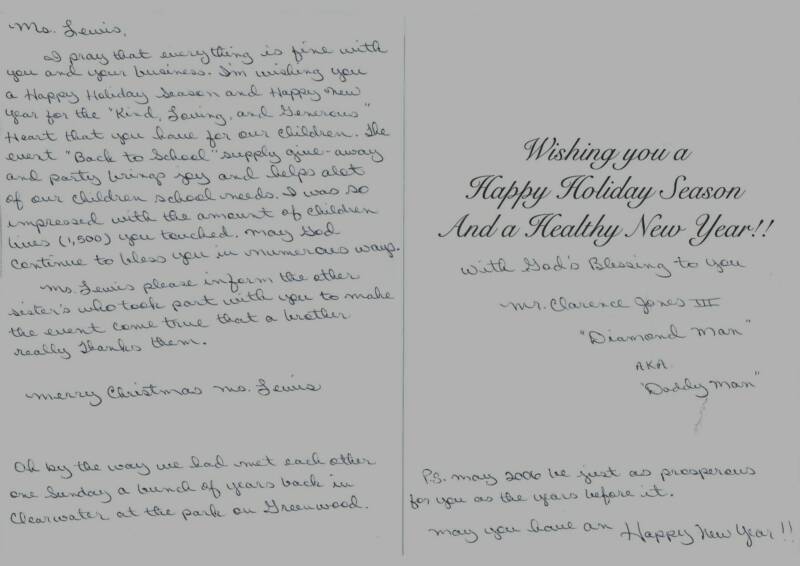 Ms. Lewis,
I pray that everything is fine with
you and your business. I'm wishing you
a Happy Holiday Season and Happy New
year for the "Kind, Loving, and Generous"
Heart that you have for our children. The
event "Back to School" supply give-away
and party brings joy and helps alot
of our children school needs. I was so
impressed with the amount of children
lives (1,500) you touched. May God
continue to bless you in numerous ways.
Ms. Lewis please inform the other
sister's who took part with you to make
the event come true that a brother
really thanks them.
Merry Christmas Ms. Lewis
Oh by the way we had met each other
one Sunday a bunch of years back in
Clearwater at the park on Greenwood.
Wishing you a
Happy Holiday Season
And a Healthy New Year!!
With God's Blessing to you
Mr. Clarence Jones III
"Diamond Man"
AKA
"Daddy Man"
P.S. May 2006 be just as prosperous
for you as the years before it.
May you have an Happy New Year!!